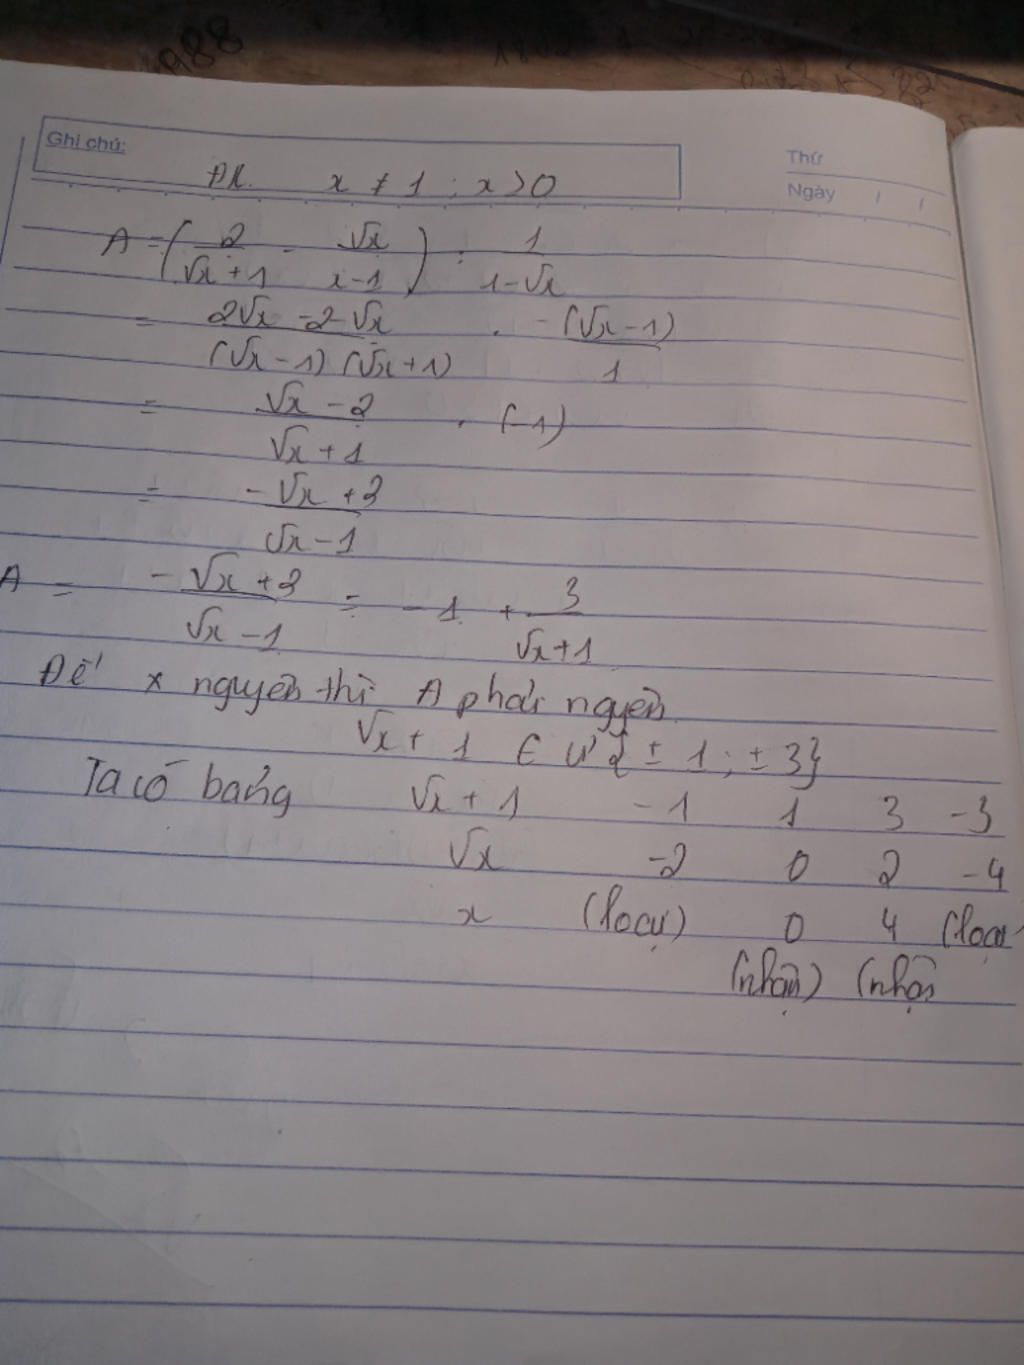 Ghi chú:
Thứ
Ngày / /
ĐK. x ≠ 1 ; x > 0
A = (2/(√x + 1) - √x/(x-1)) : 1/(1-√x)
= (2√x - 2 - √x)/((√x - 1)(√x + 1)) . -(√x - 1)/1
= (√x - 2)/(√x + 1) . (-1)
= (-√x + 2)/(√x - 1)
A = (-√x + 2)/(√x - 1) = -1 + 3/(√x+1)
Để x nguyên thì A phải ngyên
√x + 1 ∈ Ư {± 1 ; ± 3}
Ta có bảng √x + 1 -1 1 3 -3
√x -2 0 2 -4
x (loại) 0 4 (loại
(nhận) (nhận